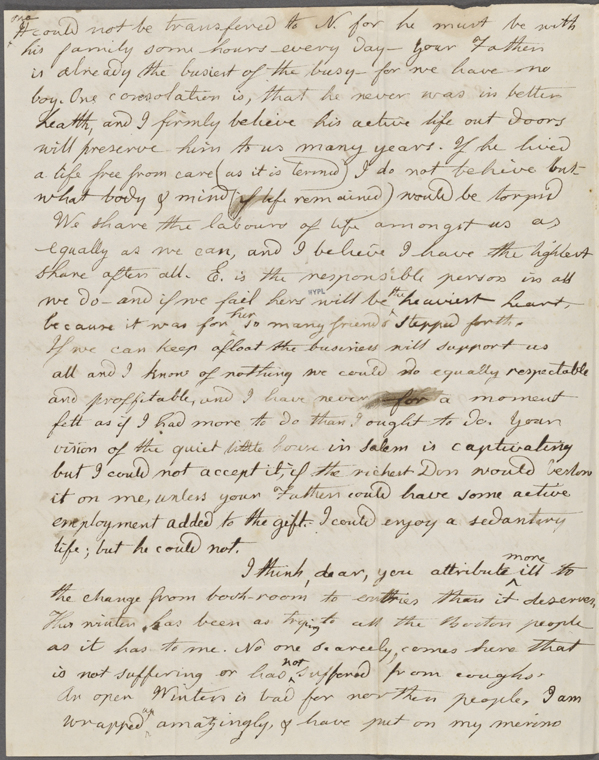 It could not be transferred to N. for he must be with
his family some hours every day – your Father
is already the busiest of the busy – for we have no
boy. One consolation is, that he never was in better
health, and I firmly believe his active life out doors
will preserve him to us many years. If he lived
a life free from care (as it is termed) I do not believe but
what body & mind (if life remained) would be torpid
We share the labours of life amongst us as
equally as we can, and I believe I have the lightest
share after all. E. is the responsible person in all
we do – and if we fail hers will be the heaviest heart,
because it was for her so many friends stepped forth.
If we can keep afloat the business will support us
all and I know of nothing we could do equally respectable
and proffitable, and I have never for a moment
felt as if I had more to do than I ought to do. Your
vision of the quiet little house in Salem is captivating
but I could not accept it, if the richest Don would bestow
it on me, unless your Father could have some active
employment added to the gift. I could enjoy a sedantary
life; but he could not.
I think, dear, you attribute more ill to
the change from book-room to entries than it deserves,
This winter has been as trying to all the Boston people
as it has to me. No one scarcely, comes here that
is not suffering or has not suffered from coughs.
An open Winter is bad for northern people, I am
wrapped up amazingly, & have put on my merino
NYPL